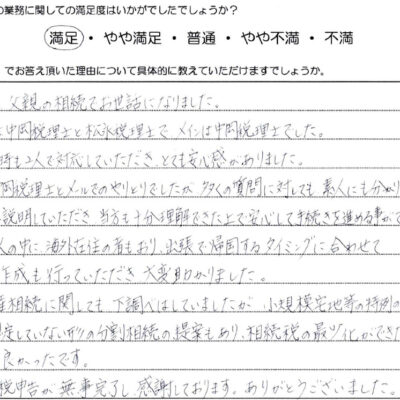 の業務に関しての満足度はいかがでしたでしょうか？
満足・やや満足・普通・やや不満・不満
でお答え頂いた理由について具体的に教えていただけますでしょうか。
父親の相続でお世話になりました。
は中岡税理士と松永税理士で、メインは中岡税理士でした。
時も2人で対応していただき、とても安心感がありました。
岡税理士とメールでのやりとりでしたが、多くの質問に対しても、素人にも分かり
説明していただき、当方も十分理解できた上で安心して手続きを進める事がで
人の中に海外在住の者もおり、出張で帰国するタイミングに合わせて
作成も行っていただき大変助かりました。
産相続に関しても下調べはしていましたが、小規模宅地等の特例の
定していない形の分割相続の提案もあり、相続税の最少化ができた
良かったです。
税申告が無事完了し、感謝しております。ありがとうございました。